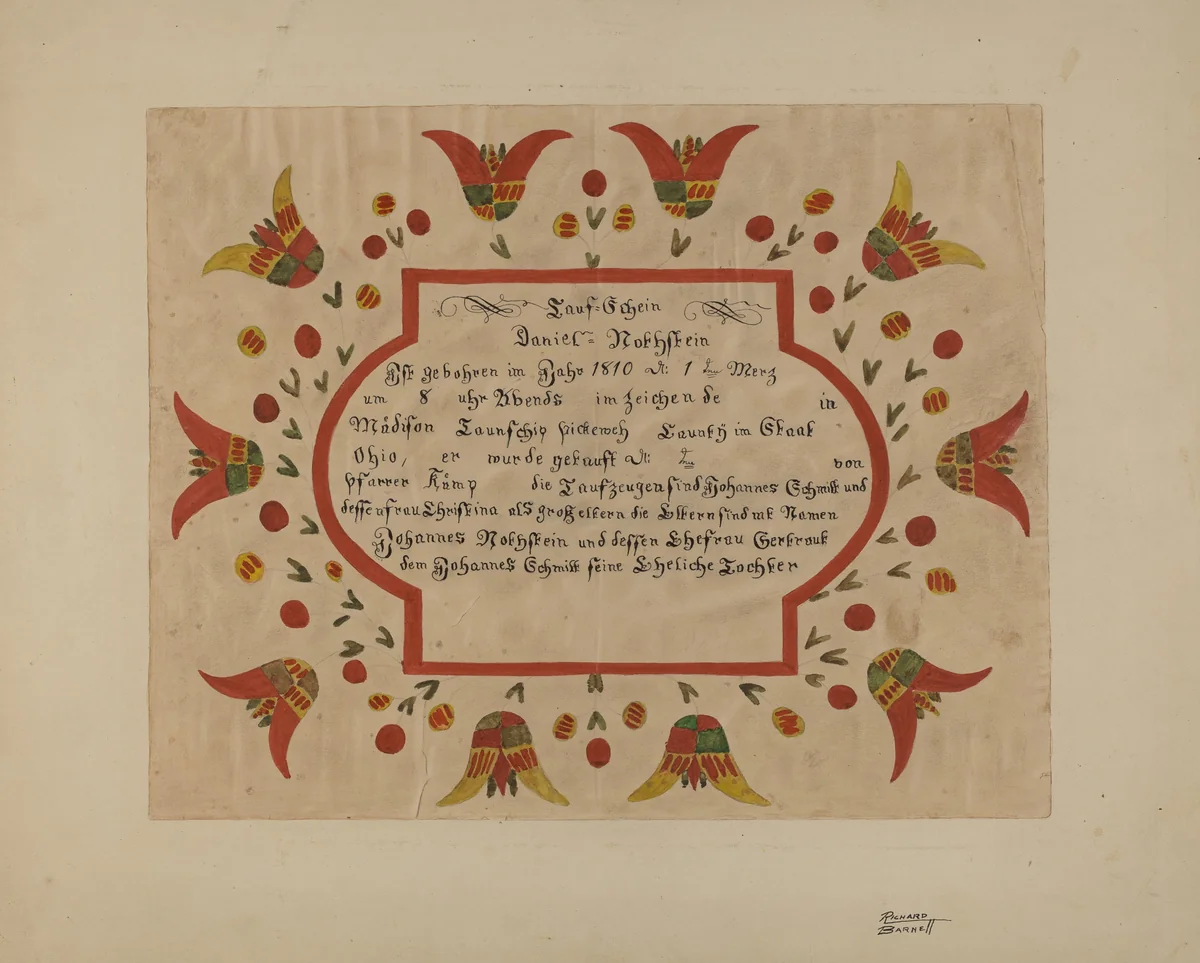 Tauf=Schein
Daniel= Nothstein
Ist gebohren im Jahr 1810 dt: 1 ten Merz
um 8 uhr Abends im zeichen de in
Mådison Taunschip pickeweh Caunty im Staat
Ohio, er wurde getauft dt: ten von
pfarrer Kåmp die Taufzeugen sind Johannes Schmitt und
dessen frau Christina als groß eltern die Eltern sind mt Namen
Johannes Nothstein und dessen Ehefrau Gertraut
dem Johannes Schmitt seine Eheliche Tochter
RICHARD
BARNETT